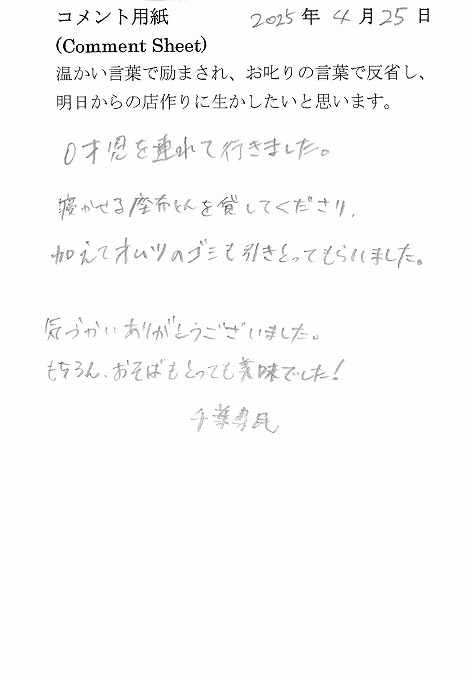 コメント用紙 2025年4月25日
(Comment Sheet)
温かい言葉で励まされ、お叱りの言葉で反省し、
明日からの店作りに生かしたいと思います。
0才児を連れて行きました。
寝かせる座布とんを貸してくださり、
加えてオムツのゴミも引きとってもらいました。
気づかいありがとうございました。
もちろん、おそばもとっても美味でした!
千葉県民